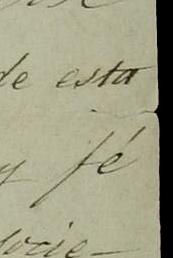 de esta
y fé
socie-